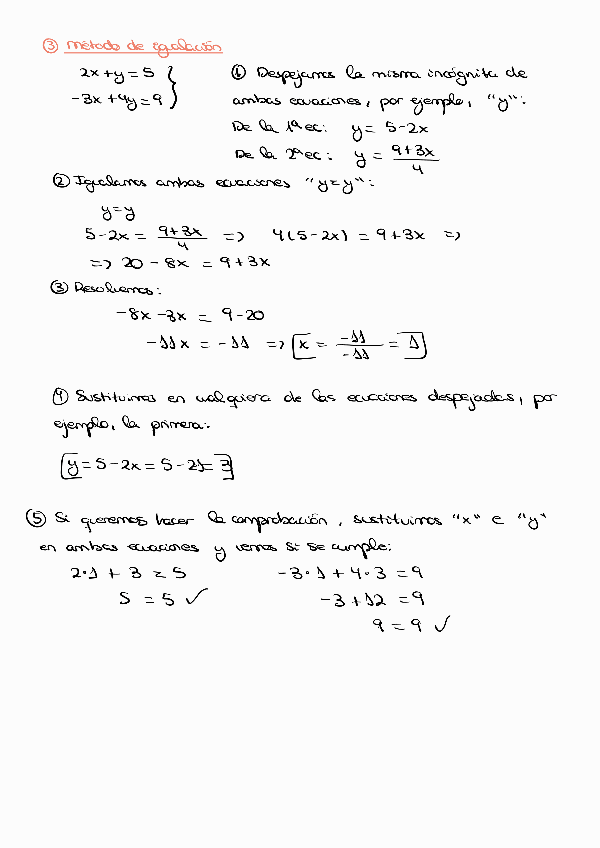 ③ Método de igualación
2x+y=5
-3x+4y=9
① Despejamos la misma incógnita de
ambas ecuaciones, por ejemplo, "y":
De la 1ª ec: y = 5-2x
De la 2ª ec: y = (9+3x)/4
② Igualamos ambas ecuaciones "y=y":
y=y
5-2x = (9+3x)/4 => 4(5-2x) = 9+3x =>
=> 20-8x = 9+3x
③ Resolvemos:
-8x-3x = 9-20
-11x = -11 => [x = -11/-11 = 1]
④ Sustituimos en cualquiera de las ecuaciones despejadas, por
ejemplo, la primera:
[y=5-2x=5-2·1=3]
⑤ Si queremos hacer la comprobación, sustituimos "x" e "y"
en ambas ecuaciones y vemos si se cumple:
2·1+3=5 -3·1+4·3=9
5=5 ✓ -3+12=9
9=9 ✓